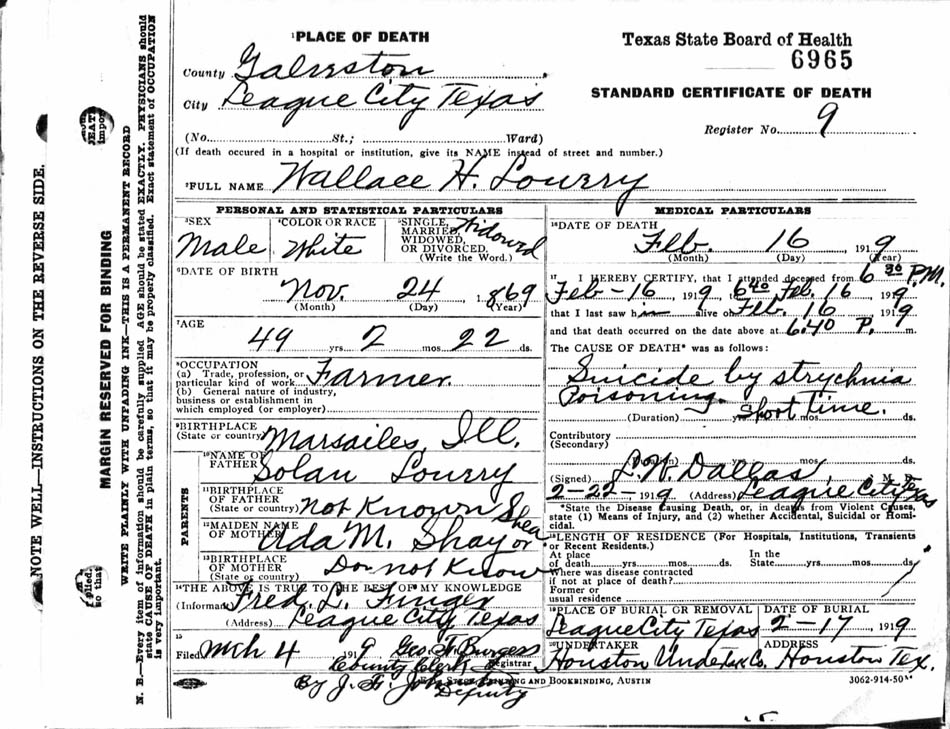 NOTE WELL.—INSTRUCTIONS ON THE REVERSE SIDE.
MARGIN RESERVED FOR BINDING
WRITE PLAINLY WITH UNFADING INK—THIS IS A PERMANENT RECORD
N. B.—Every item of information should be carefully supplied AGE should be stated EXACTLY. PHYSICIANS should
state CAUSE OF DEATH in plain terms, so that it may be properly classified. Exact statement of OCCUPATION
is very important.
¹PLACE OF DEATH
County Galveston
City League City Texas
(No. St.; Ward)
(If death occured in a hospital or institution, give its NAME instead of street and number.)
Texas State Board of Health
6965
STANDARD CERTIFICATE OF DEATH
Register No. 9
²FULL NAME Wallace H. Lowry
PERSONAL AND STATISTICAL PARTICULARS
³SEX
Male
⁴COLOR OR RACE
White
⁵SINGLE, MARRIED, WIDOWED, OR DIVORCED.
(Write the Word.)
Widowed
⁶DATE OF BIRTH
Nov. 24 1869
(Month) (Day) (Year)
⁷AGE
49 yrs 2 mos 22 ds.
⁸OCCUPATION
(a) Trade, profession, or
particular kind of work Farmer.
(b) General nature of industry,
business or establishment in
which employed (or employer)
⁹BIRTHPLACE
(State or country) Marsailes, Ill.
PARENTS
¹⁰NAME OF
FATHER Solan Lowry
¹¹BIRTHPLACE
OF FATHER
(State or country) Not Known
¹²MAIDEN NAME
OF MOTHER Ada M. Shay or Shea
¹³BIRTHPLACE
OF MOTHER
(State or country) Do not Know
¹⁴THE ABOVE IS TRUE TO THE BEST OF MY KNOWLEDGE
(Informant) Fred. L.
(Address) League City, Texas
¹⁵
Filed Mch 4 1919 Geo. F. Burgess
County Clerk Registrar
By J. F.
Deputy
MEDICAL PARTICULARS
¹⁶DATE OF DEATH
Feb. 16 1919
(Month) (Day) (Year)
¹⁷ I HEREBY CERTIFY, that I attended deceased from 6 30 P.M.
Feb-16 1919 6 40 Feb. 16 1919
that I last saw him alive on Feb. 16 1919
and that death occurred on the date above at 6:40 P. m.
The CAUSE OF DEATH* was as follows:
Suicide by strychnia
Poisoning.
(Duration) yrs. mos. ds.
Short Time.
Contributory
(Secondary)
(Duration) yrs. mos. ds.
(Signed) L. H. Dallas M. D.
2-22-1919 (Address) League City Texas
*State the Disease Causing Death, or, in deaths from Violent Causes,
state (1) Means of Injury, and (2) whether Accidental, Suicidal or Homi-
cidal.
¹⁸LENGTH OF RESIDENCE (For Hospitals, Institutions, Transients
or Recent Residents.)
At place In the
of death yrs. mos. ds. State yrs. mos. ds.
Where was disease contracted
if not at place of death?
Former or
usual residence
¹⁹PLACE OF BURIAL OR REMOVAL
League City Texas
DATE OF BURIAL
2-17 1919
²⁰UNDERTAKER
Houston Undertak Co.
ADDRESS
Houston Tex.
PRINTING AND BOOKBINDING, AUSTIN
3062-914-50M